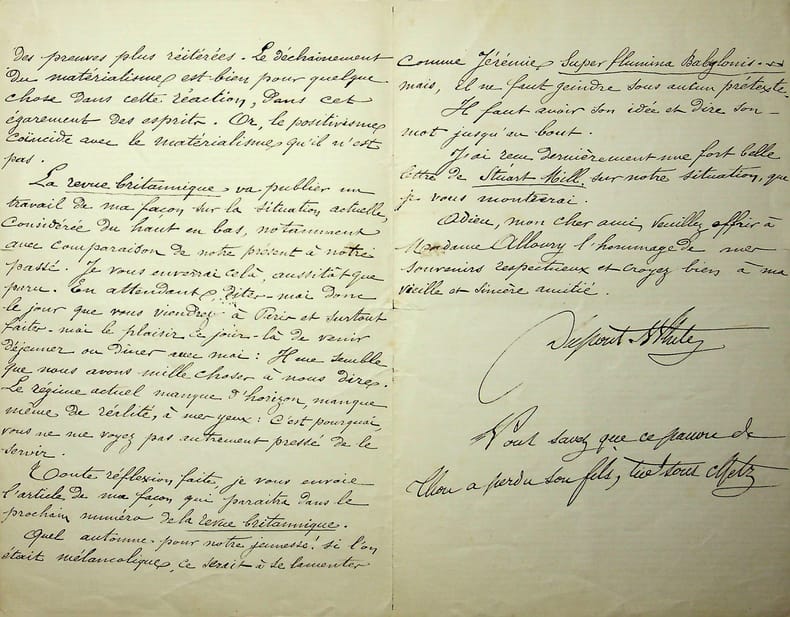 des preuves plus réitérées. Le déchaînement
du matérialisme est bien pour quelque
chose dans cette réaction, dans cet
égarement des esprits. Or, le positivisme
coïncide avec le matérialisme qu'il n'est
pas.
La revue britannique va publier un
travail de ma façon sur la situation actuelle,
considérée du haut en bas, notamment
avec comparaison de notre présent à notre
passé. Je vous enverrai celà, aussitôt que
paru. En attendant, dites-moi donc
le jour que vous viendrez à Paris et surtout
faites-moi le plaisir ce jour-là de venir
déjeuner ou dîner avec moi : Il me semble
que nous avons mille choses à nous dire.
Le régime actuel manque d'horizon, manque
même de réalité, à mes yeux : C'est pourquoi,
vous ne me voyez pas autrement pressé de le
servir.
Toute réflexion faite, je vous envoie
l'article de ma façon qui paraitra dans le
prochain numéro de la revue britannique.
Quel automne pour notre jeunesse! si l'on
était mélancolique, ce serait à se lamenter
comme Jérémie, Super flumina Babylonis.
mais, il ne faut geindre sous aucun prétexte.
Il faut avoir son idée et dire son
mot jusqu'au bout.
J'ai reçu dernièrement une fort belle
lettre de Stuart Mill, sur notre situation, que
je vous montrerai.
Adieu, mon cher ami, veuillez offrir à
Madame Alloury l'hommage de mes
souvenirs respectueux et croyez bien à ma
vieille et sincère amitié.
Dupont White
Vous savez que ce pauvre de
a perdu son fils, tué sous Metz